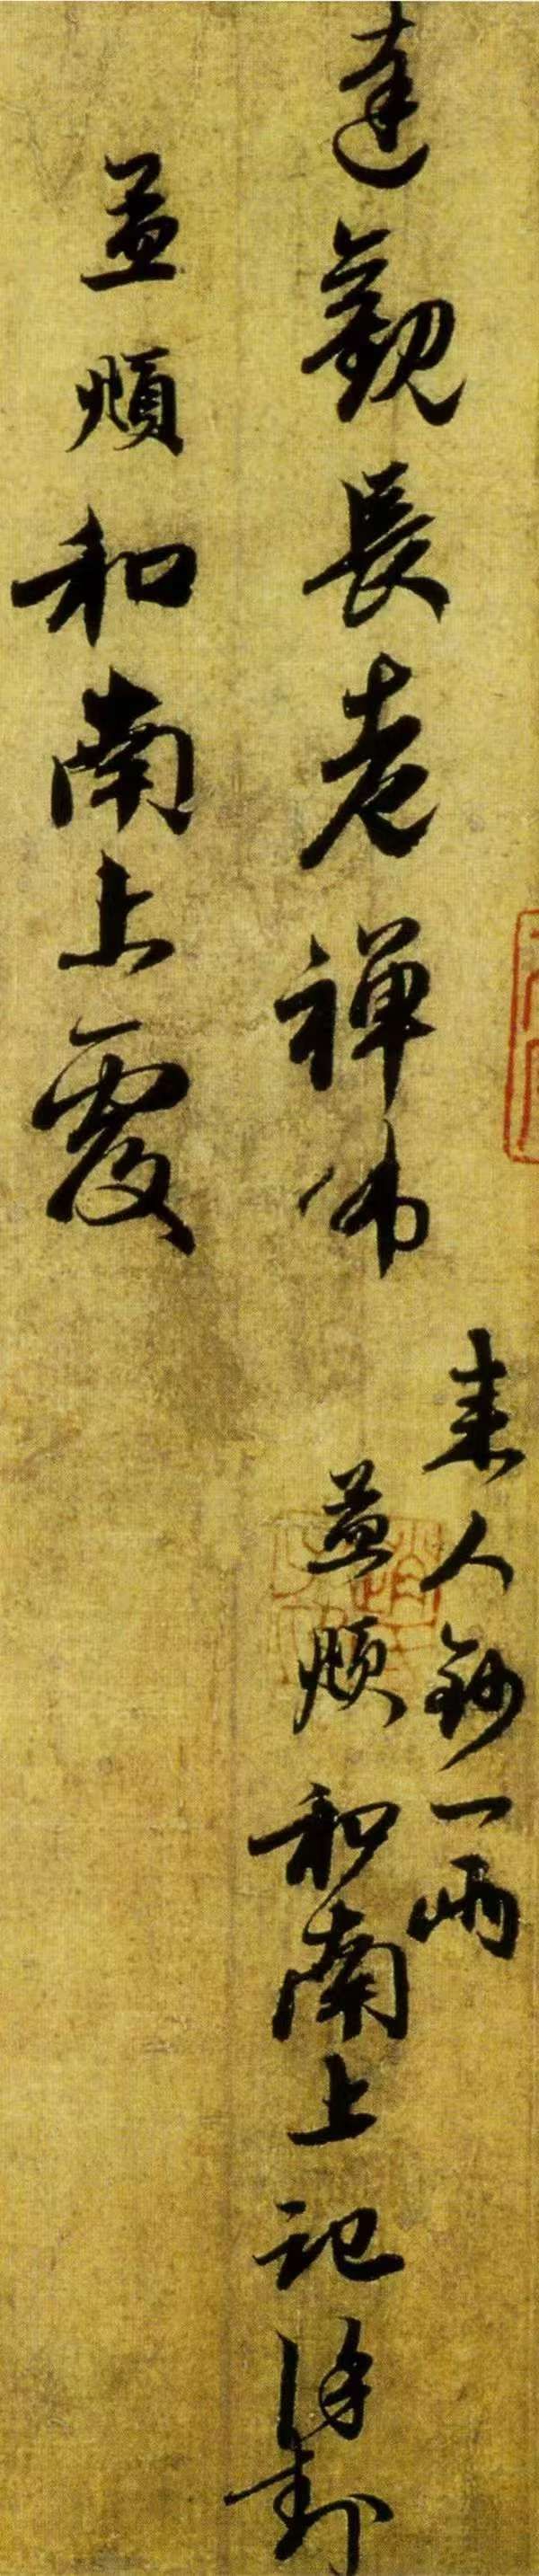 来人鈔一兩
達觀長老禪師　孟頫和南上記謹封
孟頫和南上覆